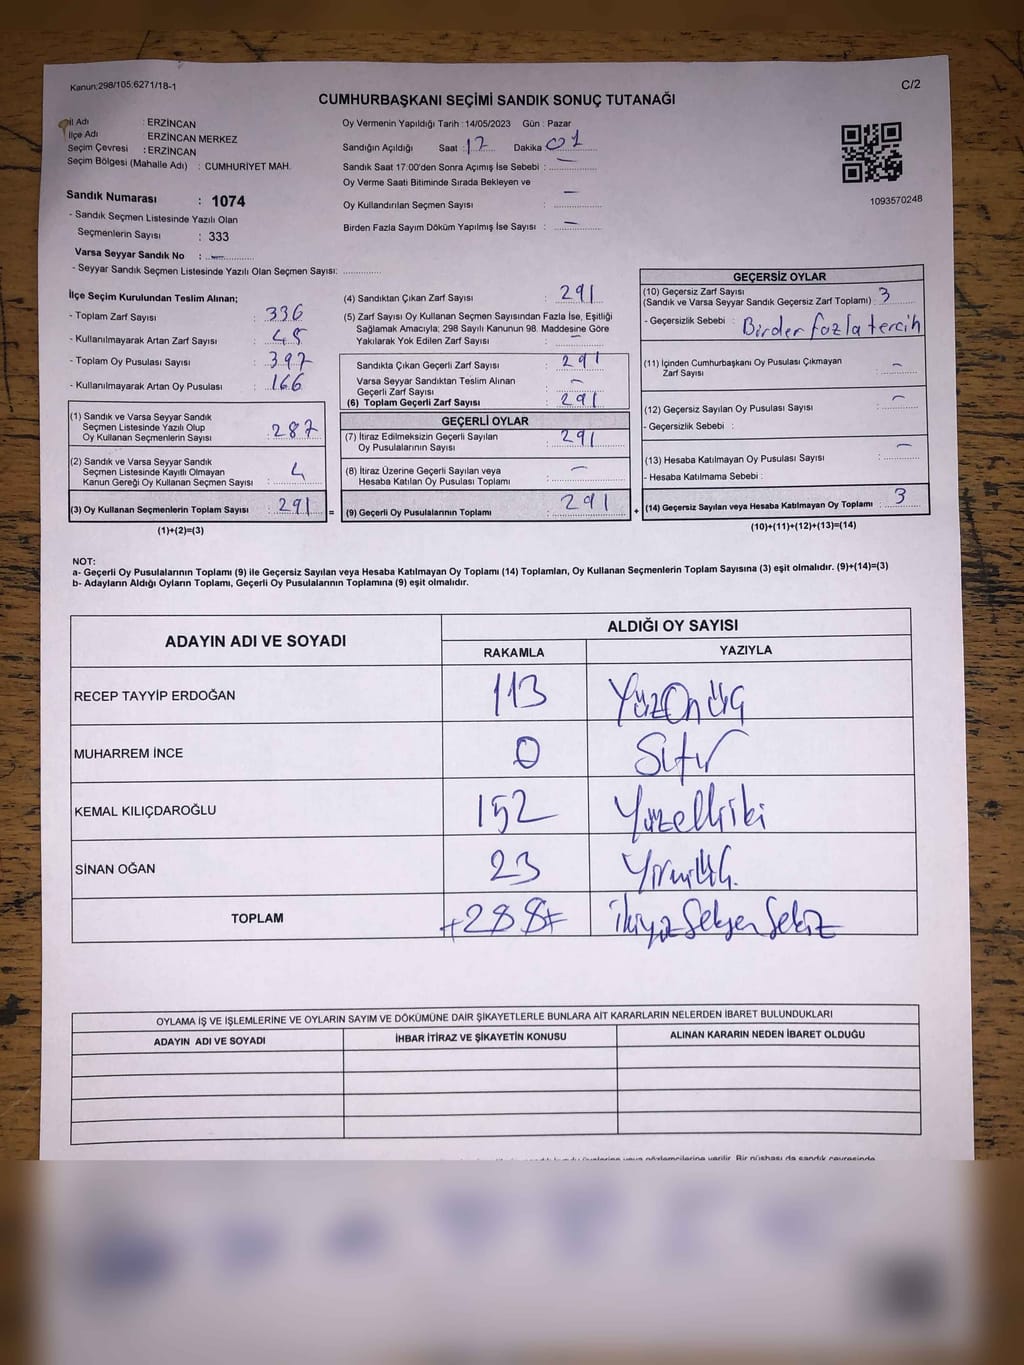 Kanun:298/105:6271/18-1
C/2
CUMHURBAŞKANI SEÇİMİ SANDIK SONUÇ TUTANAĞI
İl Adı : ERZİNCAN
İlçe Adı : ERZİNCAN MERKEZ
Seçim Çevresi : ERZİNCAN
Seçim Bölgesi (Mahalle Adı) : CUMHURİYET MAH.
Sandık Numarası : 1074
- Sandık Seçmen Listesinde Yazılı Olan
Seçmenlerin Sayısı : 333
Varsa Seyyar Sandık No : -
- Seyyar Sandık Seçmen Listesinde Yazılı Olan Seçmen Sayısı:
Oy Vermenin Yapıldığı Tarih : 14/05/2023 Gün : Pazar
Sandığın Açıldığı Saat : 17 Dakika : 01
Sandık Saat 17:00'den Sonra Açımış İse Sebebi : -
Oy Verme Saati Bitiminde Sırada Bekleyen ve
Oy Kullandırılan Seçmen Sayısı : -
Birden Fazla Sayım Döküm Yapılmış İse Sayısı : -
1093570248
İlçe Seçim Kurulundan Teslim Alınan;
- Toplam Zarf Sayısı : 336
- Kullanılmayarak Artan Zarf Sayısı : 45
- Toplam Oy Pusulası Sayısı : 397
- Kullanılmayarak Artan Oy Pusulası : 166
(1) Sandık ve Varsa Seyyar Sandık
Seçmen Listesinde Yazılı Olup
Oy Kullanan Seçmenlerin Sayısı : 287
(2) Sandık ve Varsa Seyyar Sandık
Seçmen Listesinde Kayıtlı Olmayan
Kanun Gereği Oy Kullanan Seçmen Sayısı : 4
(3) Oy Kullanan Seçmenlerin Toplam Sayısı : 291
(1)+(2)=(3)
=
(4) Sandıktan Çıkan Zarf Sayısı : 291
(5) Zarf Sayısı Oy Kullanan Seçmen Sayısından Fazla İse, Eşitliği
Sağlamak Amacıyla; 298 Sayılı Kanunun 98. Maddesine Göre
Yakılarak Yok Edilen Zarf Sayısı : -
Sandıkta Çıkan Geçerli Zarf Sayısı : 291
Varsa Seyyar Sandıktan Teslim Alınan
Geçerli Zarf Sayısı : -
(6) Toplam Geçerli Zarf Sayısı : 291
GEÇERLİ OYLAR
(7) İtiraz Edilmeksizin Geçerli Sayılan
Oy Pusulalarının Sayısı : 291
(8) İtiraz Üzerine Geçerli Sayılan veya
Hesaba Katılan Oy Pusulası Toplamı : -
(9) Geçerli Oy Pusulalarının Toplamı : 291
+
GEÇERSİZ OYLAR
(10) Geçersiz Zarf Sayısı
(Sandık ve Varsa Seyyar Sandık Geçersiz Zarf Toplamı) : 3
- Geçersizlik Sebebi : Birden fazla tercih
(11) İçinden Cumhurbaşkanı Oy Pusulası Çıkmayan
Zarf Sayısı : -
(12) Geçersiz Sayılan Oy Pusulası Sayısı : -
- Geçersizlik Sebebi :
(13) Hesaba Katılmayan Oy Pusulası Sayısı : -
- Hesaba Katılmama Sebebi :
(14) Geçersiz Sayılan veya Hesaba Katılmayan Oy Toplamı : 3
(10)+(11)+(12)+(13)=(14)
NOT:
a- Geçerli Oy Pusulalarının Toplamı (9) ile Geçersiz Sayılan veya Hesaba Katılmayan Oy Toplamı (14) Toplamları, Oy Kullanan Seçmenlerin Toplam Sayısına (3) eşit olmalıdır. (9)+(14)=(3)
b- Adayların Aldığı Oyların Toplamı, Geçerli Oy Pusulalarının Toplamına (9) eşit olmalıdır.
ADAYIN ADI VE SOYADI ALDIĞI OY SAYISI
RAKAMLA YAZIYLA
RECEP TAYYİP ERDOĞAN 113 Yüzonüç
MUHARREM İNCE 0 Sıfır
KEMAL KILIÇDAROĞLU 152 Yüzelliiki
SİNAN OĞAN 23
TOPLAM +288+ İkiyüzSeksenSekiz
OYLAMA İŞ VE İŞLEMLERİNE VE OYLARIN SAYIM VE DÖKÜMÜNE DAİR ŞİKAYETLERLE BUNLARA AİT KARARLARIN NELERDEN İBARET BULUNDUKLARI
ADAYIN ADI VE SOYADI İHBAR İTİRAZ VE ŞİKAYETİN KONUSU ALINAN KARARIN NEDEN İBARET OLDUĞU